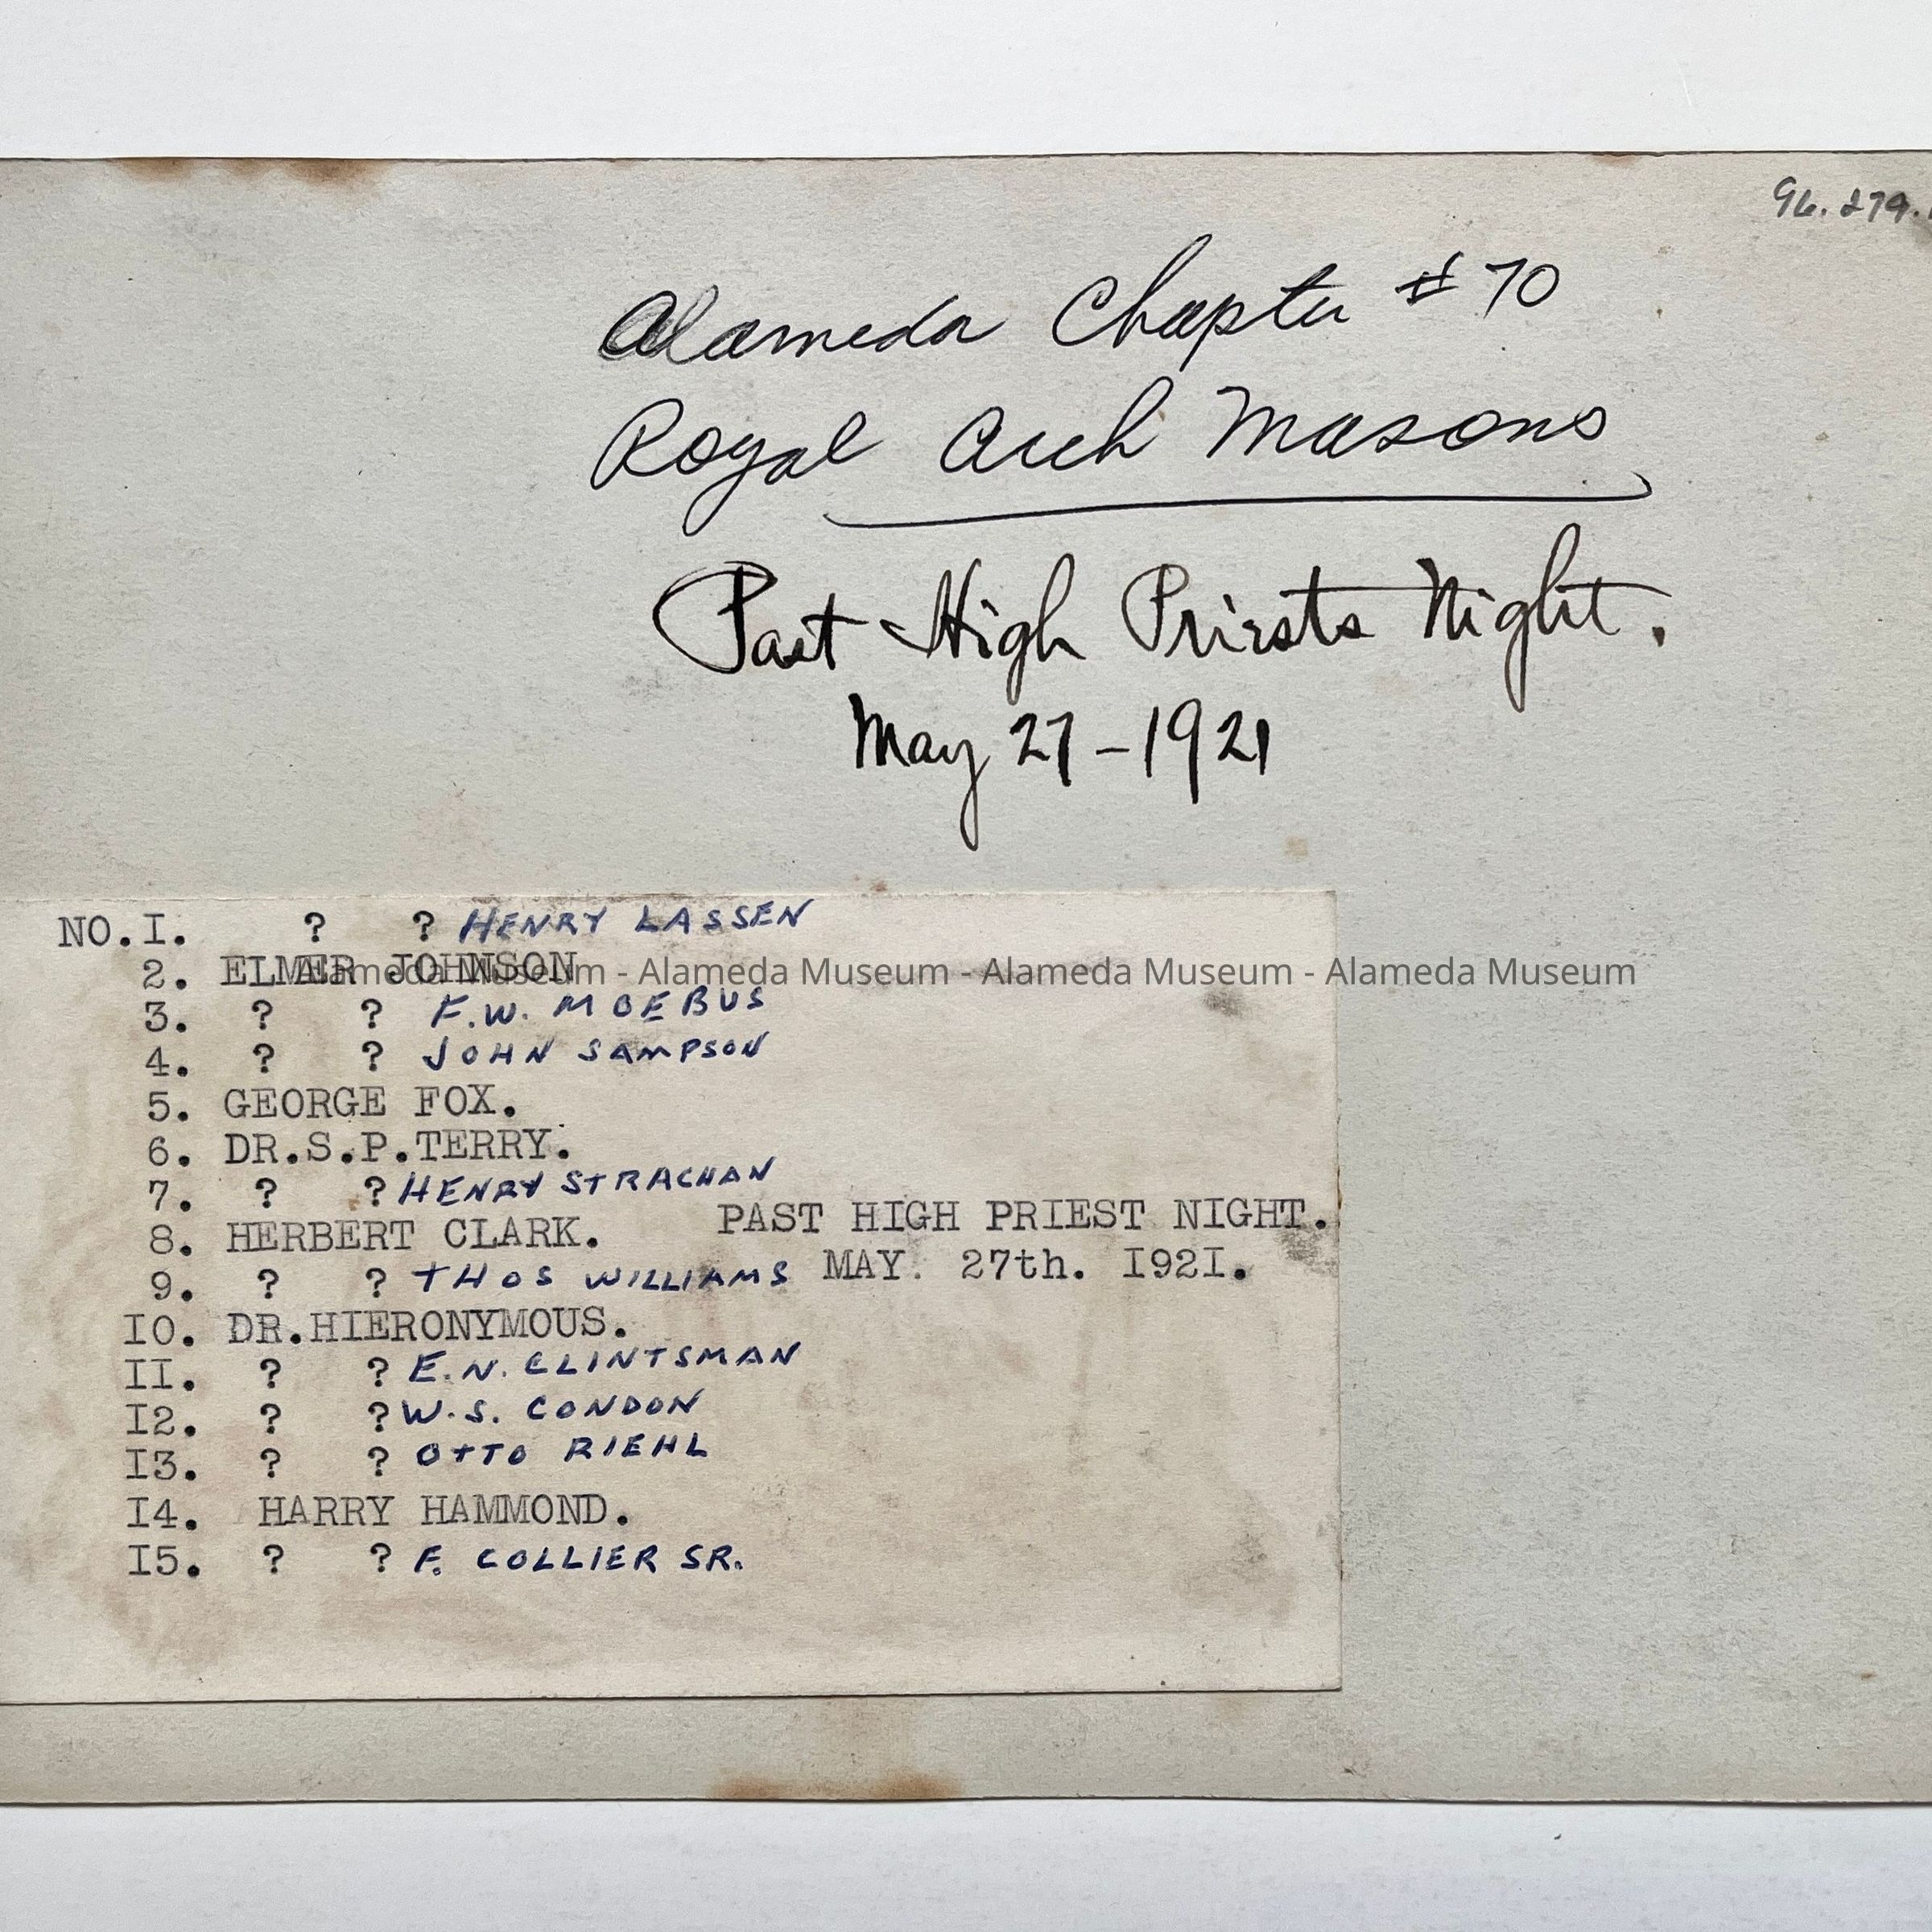 96.279.
Alameda Chapter # 70
Royal Arch Masons
Past High Priests Night.
May 27-1921
NO.I. ? ? HENRY LASSEN
2. ELMER JOHNSON
Alameda Museum - Alameda Museum - Alameda Museum - Alameda Museum
3. ? ? F.W. MOEBUS
4. ? ? JOHN SAMPSON
5. GEORGE FOX.
6. DR.S.P.TERRY.
7. ? ? HENRY STRACHAN
8. HERBERT CLARK. PAST HIGH PRIEST NIGHT.
9. ? ? THOS WILLIAMS MAY. 27th. I92I.
I0. DR.HIERONYMOUS.
II. ? ? E.N. CLINTSMAN
I2. ? ? W.S. CONDON
I3. ? ? OTTO RIEHL
I4. HARRY HAMMOND.
I5. ? ? F. COLLIER SR.